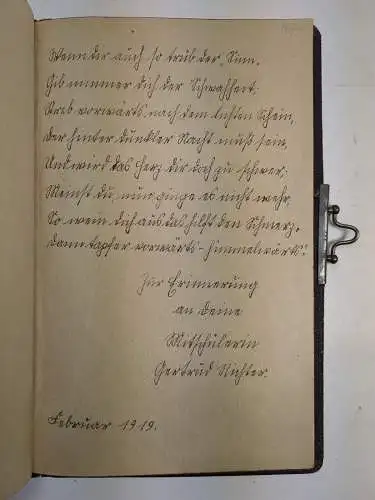 Wenn dir auch so trüb der Sinn,
Gib nimmer dich der Schwachheit,
Streb vorwärts nach dem lichten Schein,
Der hinter dunkler Nacht muß sein,
Und wird das Herz dir doch zu schwer,
Meinst du, nun ginge es nicht mehr,
So wein dich aus das hilft den Schmerz,
dann tapfer vorwärts - himmelwärts!"
Zur Erinnerung
an Deine
Mitschülerin
Gertrud Richter.
Februar 1919.